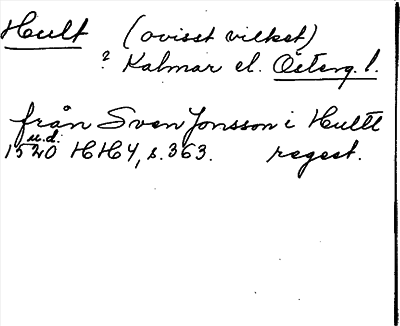 Hult (ovisst vilket)
? Kalmar el. Österg. l.
från Sven Jonsson i Hultt
u.d.
1520 HH4, s. 363. regest.